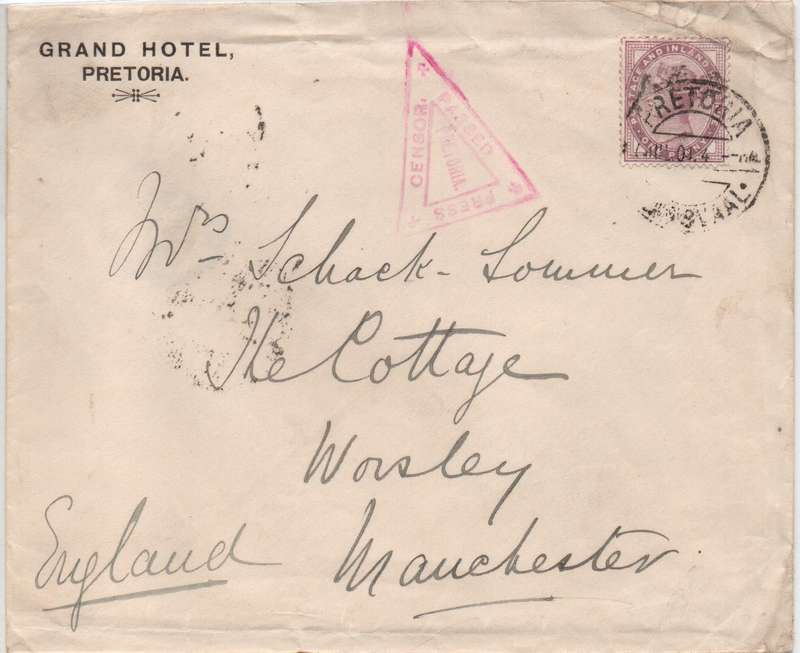 GRAND HOTEL,
PRETORIA.
PASSED
PRESS
CENSOR.
PRETORIA.
PRETORIA
01
Mrs Schack-Sommer
The Cottage
Worsley
Manchester
England